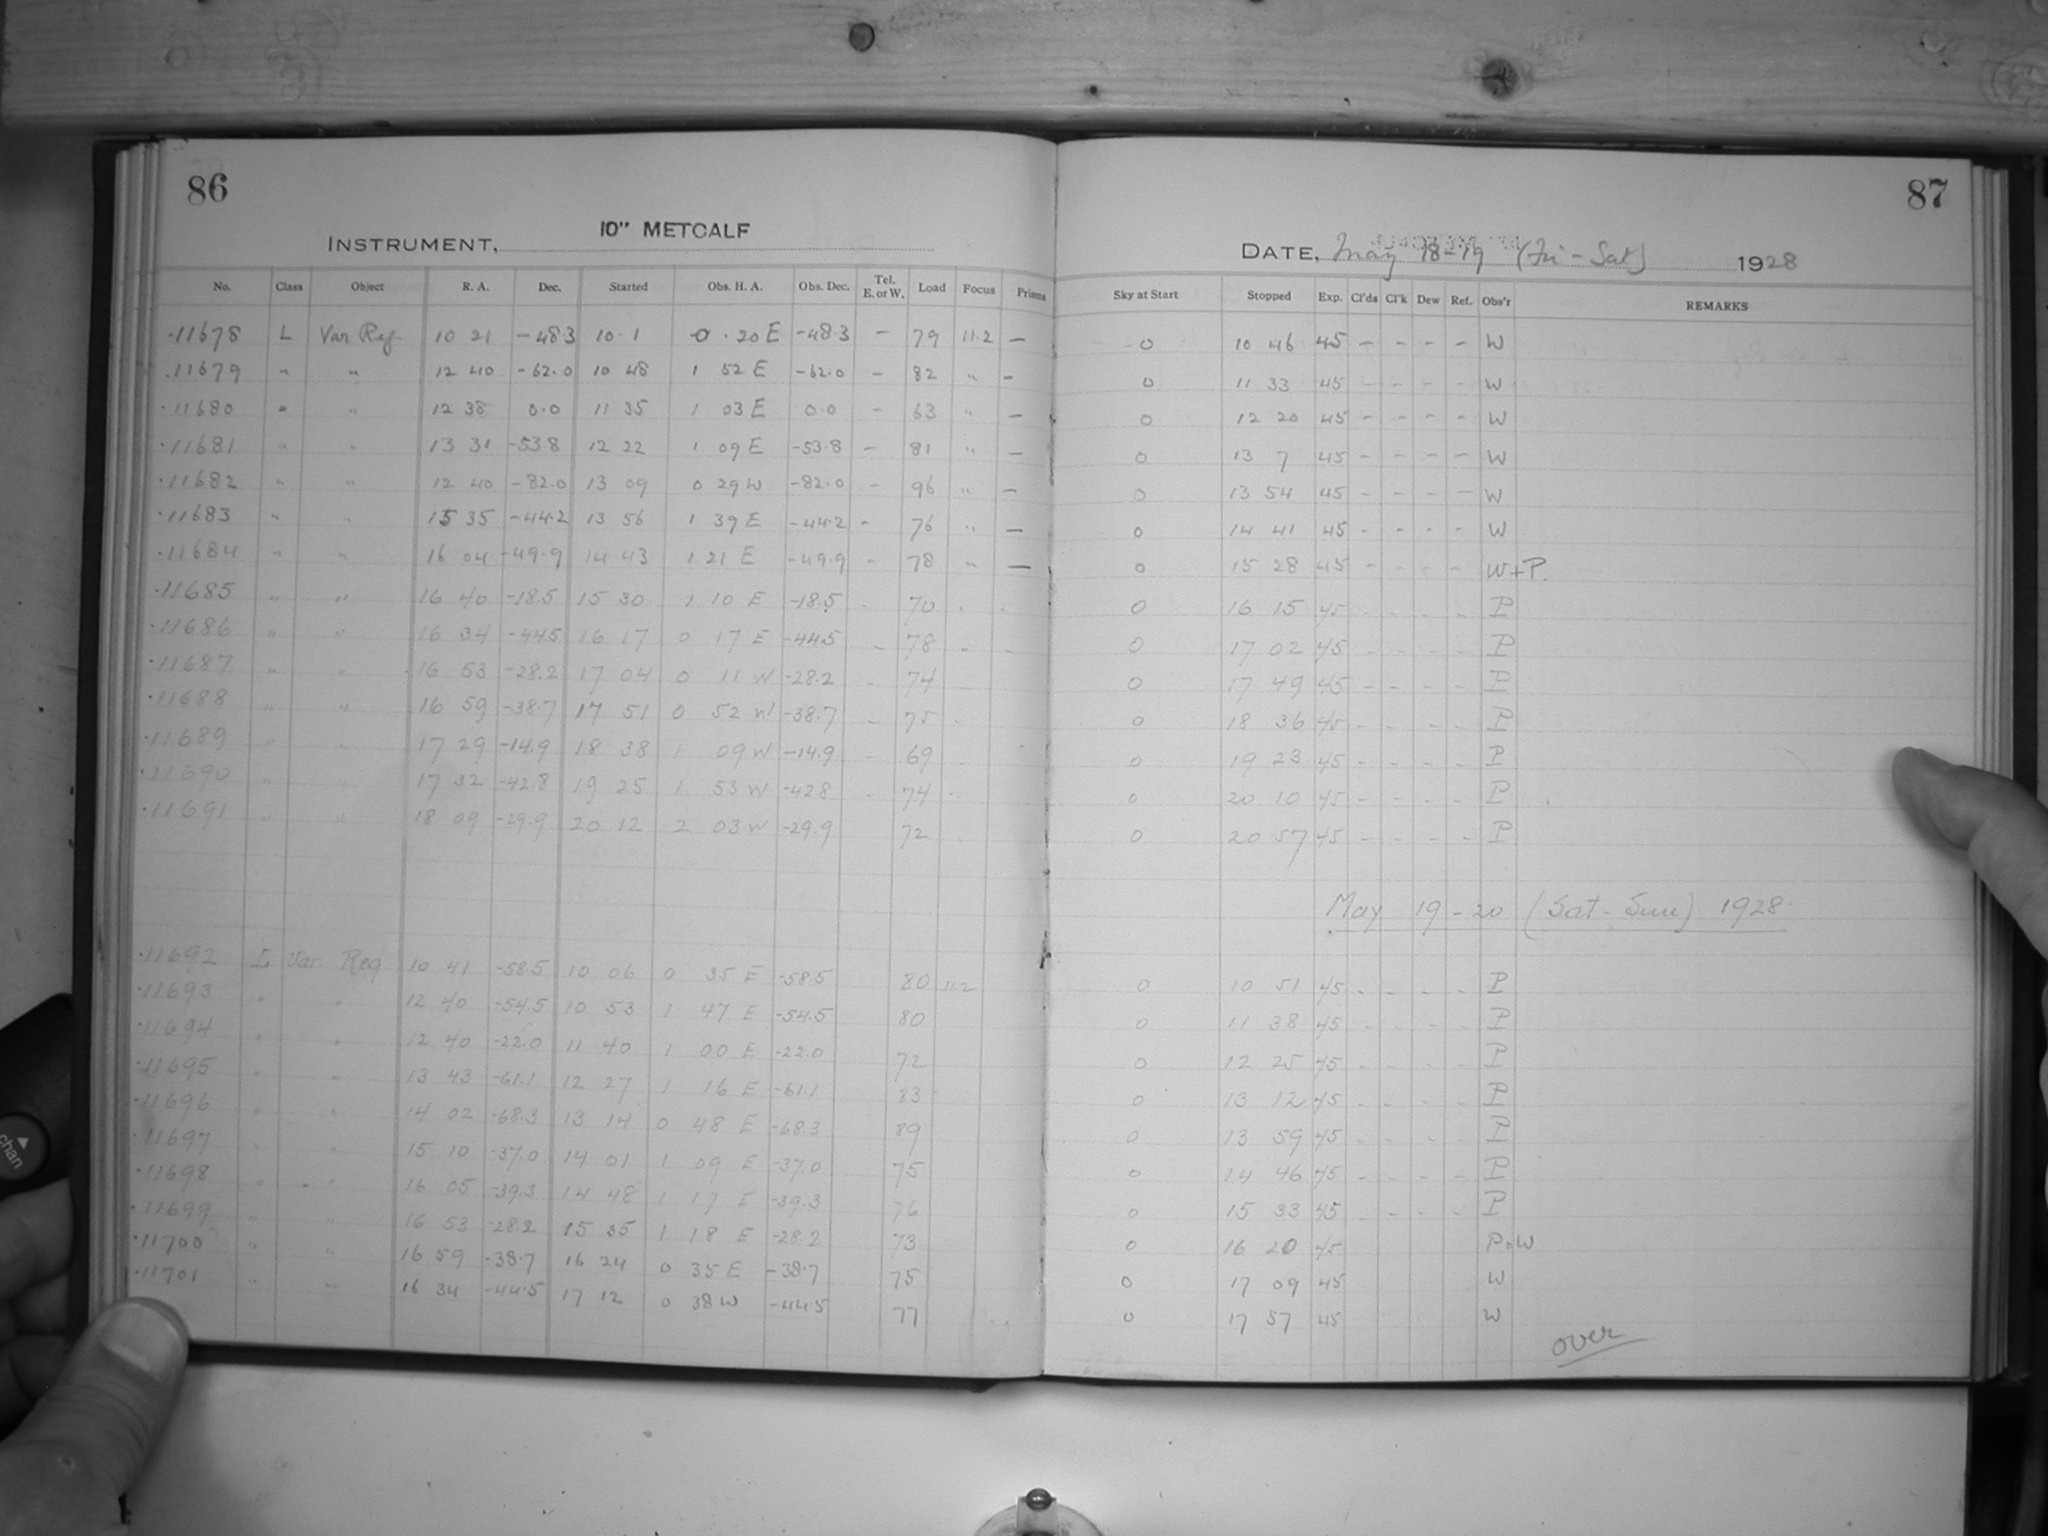 86
10" METCALF
INSTRUMENT,
No. Class Object R. A. Dec. Started Obs. H. A. Obs. Dec. Tel. E. or W. Load Focus Prisms
11678 L Var Reg. 10 21 -48.3 10 1 0 . 20 E -48.3 - 79 11.2 -
11679 " " 12 40 -62.0 10 48 1 52 E -62.0 - 82 " -
11680 " " 12 38 0.0 11 35 1 03 E 0.0 - 63 " -
11681 " " 13 31 -53.8 12 22 1 09 E -53.8 - 81 " -
11682 " " 12 40 -82.0 13 09 0 29 W -82.0 - 96 " -
11683 " " 15 35 -44.2 13 56 1 39 E -44.2 - 76 " -
11684 " " 16 04 -49.9 14 43 1 21 E -49.9 - 78 " -
11685 " " 16 40 -18.5 15 30 1 10 E -18.5 - 70 . .
11686 " " 16 34 -44.5 16 17 0 17 E -44.5 - 78 - -
11687 " " 16 53 -28.2 17 04 0 11 W -28.2 - 74 -
11688 " " 16 59 -38.7 17 51 0 52 W -38.7 - 75 -
11689 " " 17 29 -14.9 18 38 1 09 W -14.9 - 69
11690 " " 17 32 -42.8 19 25 1 53 W -42.8 - 74 -
11691 " " 18 09 -29.9 20 12 2 03 W -29.9 72
11692 L Var. Reg 10 41 -58.5 10 06 0 35 E -58.5 80 11.2
11693 " " 12 40 -54.5 10 53 1 47 E -54.5 80
11694 " " 12 40 -22.0 11 40 1 00 E -22.0 72
11695 " " 13 43 -61.1 12 27 1 16 E -61.1 83
11696 " " 14 02 -68.3 13 14 0 48 E -68.3 89
11697 " " 15 10 -37.0 14 01 1 09 E -37.0 75
11698 " " 16 05 -39.3 14 48 1 17 E -39.3 76
11699 " " 16 53 -28.2 15 35 1 18 E -28.2 73
11700 " " 16 59 -38.7 16 24 0 35 E -38.7 75
11701 " " 16 34 -44.5 17 12 0 38 W -44.5 77
87
DATE, May 18-19 (Fri - Sat) 1928
Sky at Start Stopped Exp. Cl'ds Cl'k Dew Ref. Obs'r REMARKS
0 10 46 45 - - - - W
0 11 33 45 - - - - W
0 12 20 45 - - - - W
0 13 7 45 - - - - W
0 13 54 45 - - - - W
0 14 41 45 - - - - W
0 15 28 45 - - - - W+P.
0 16 15 45 - - - - P
0 17 02 45 - - - - P
0 17 49 45 - - - - P
0 18 36 45 - - - - P
0 19 23 45 - - - - P
0 20 10 45 - - - - P
0 20 57 45 - - - - P
May 19 - 20 (Sat - Sun) 1928
0 10 51 45 - - - - P
0 11 38 45 - - - - P
0 12 25 45 - - - - P
0 13 12 45 - - - - P
0 13 59 45 - - - - P
0 14 46 45 - - - - P
0 15 33 45 - - - - P
0 16 20 45 P.W
0 17 09 45 W
0 17 57 45 W
over
chan